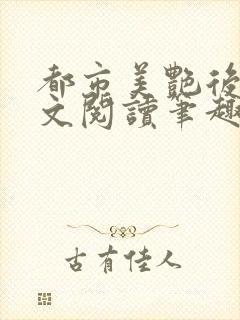 都市美艷後
文閱讀筆趣
古有佳人